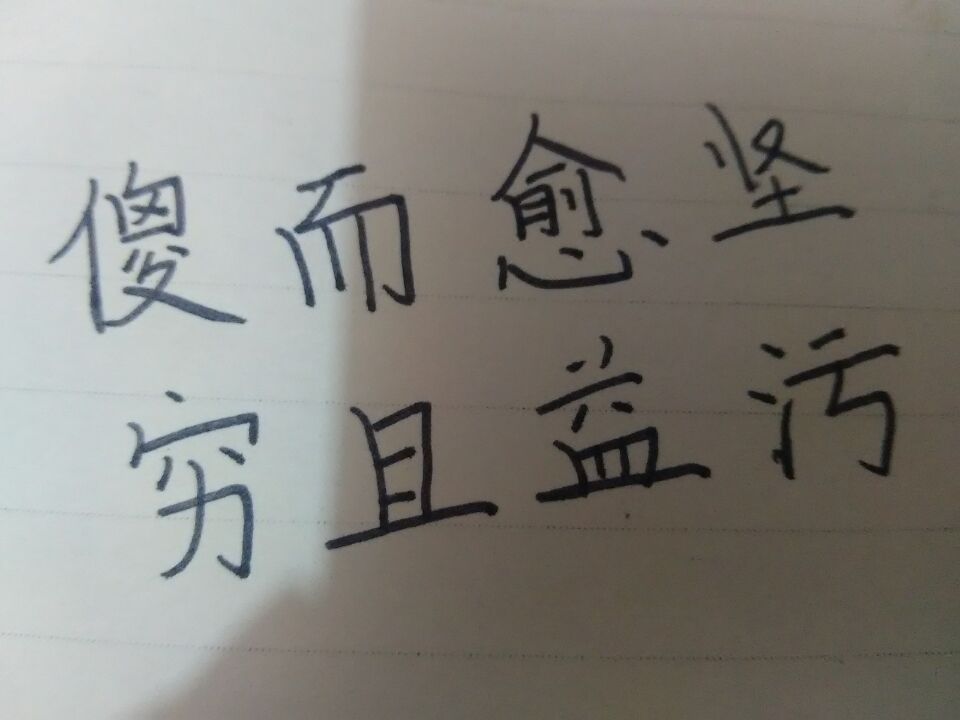 傻而愈坚
穷且益污